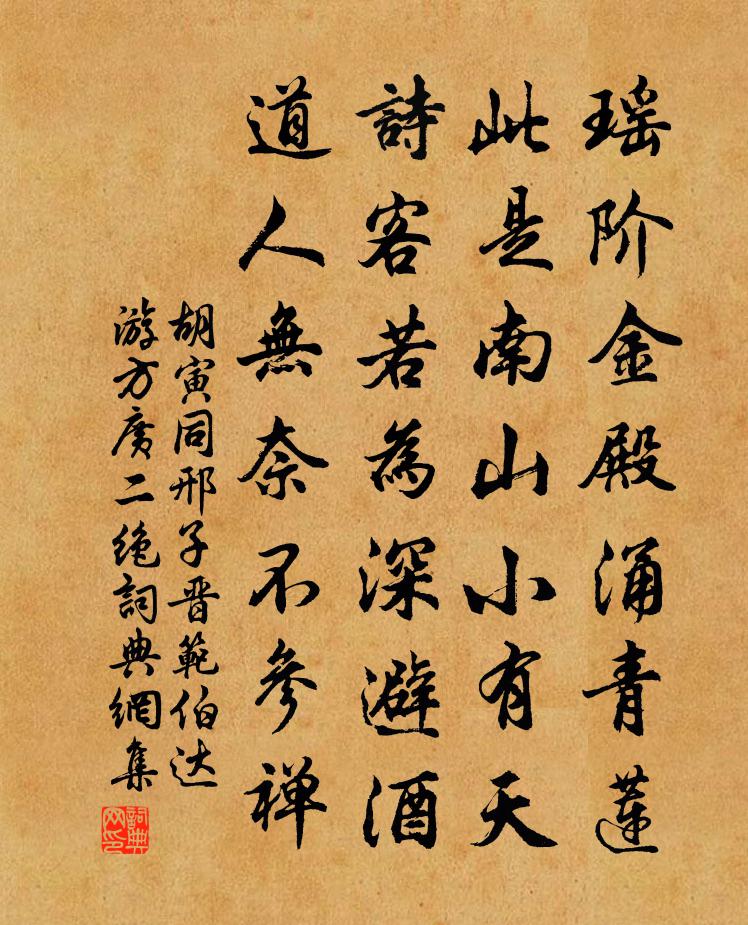 瑶阶金殿涌青莲
此是南山小有天
詩客若為深避酒
道人無奈不參禅
胡寅同邢子晋範伯达
游方廣二绝詞典網集
詞典
网印